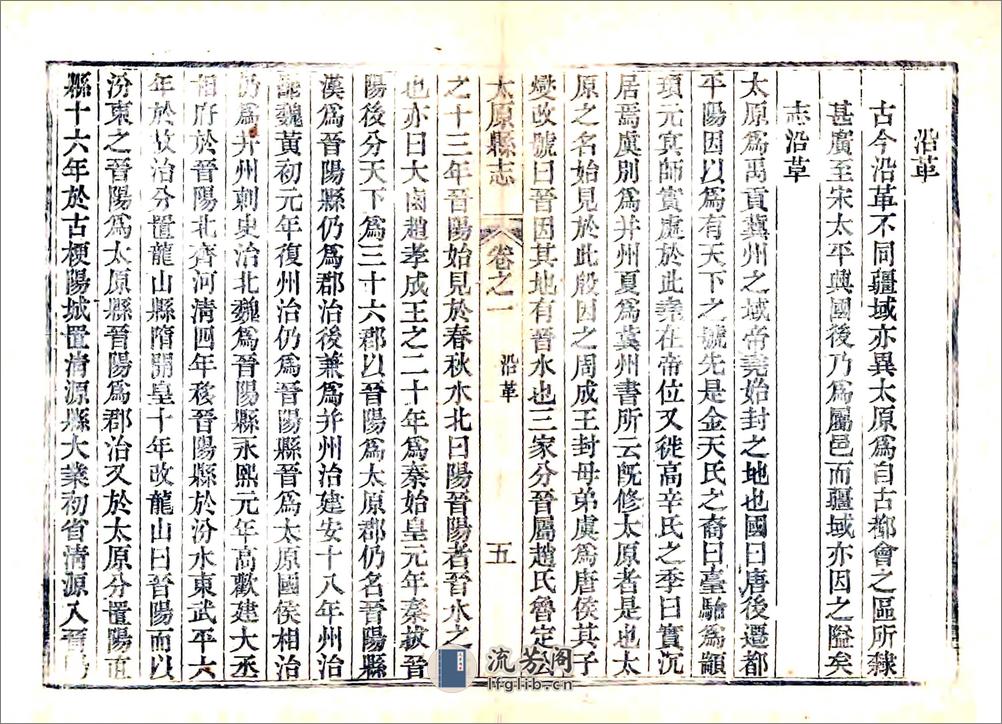 沿革
古今沿革不同疆域亦異太原爲自古都會之區所隸
甚廣至宋太平興國後乃爲屬邑而疆域亦因之隘矣
志沿革
太原爲禹貢冀州之域帝堯始封之地也國曰唐後遷都
平陽因以爲有天下之號先是金天氏之裔曰臺駘爲顓
頊元冥師實處於此堯在帝位又徙高辛氏之季曰實沉
居焉虞別爲并州夏爲冀州書所云旣修太原者是也太
原之名始見於此殷因之周成王封母弟虞爲唐侯其子
燮改號曰晉因其地有晉水也三家分晉屬趙氏魯定公
太原縣志
卷之一
沿革
五
之十三年晉陽始見於春秋水北曰陽晉陽者晉水之
也亦曰大鹵趙孝成王之二十年爲秦始皇元年秦拔晉
陽後分天下爲三十六郡以晉陽爲太原郡仍名晉陽縣
漢爲晉陽縣仍爲郡治後兼爲并州治建安十八年州治
魏黃初元年復州治仍爲晉陽縣晉爲太原國侯相治
仍爲并州刺史治北魏爲晉陽縣永熙元年高歡建大丞
相府於晉陽北齊河清四年移晉陽縣於汾水東武平六
年於故治分置龍山縣隋開皇十年改龍山曰晉陽而以
汾東之晉陽爲太原縣晉陽爲郡治又於太原分置陽直
縣十六年於古梗陽城置清源縣大業初省清源入晉
流芳阁
lfglib.cn